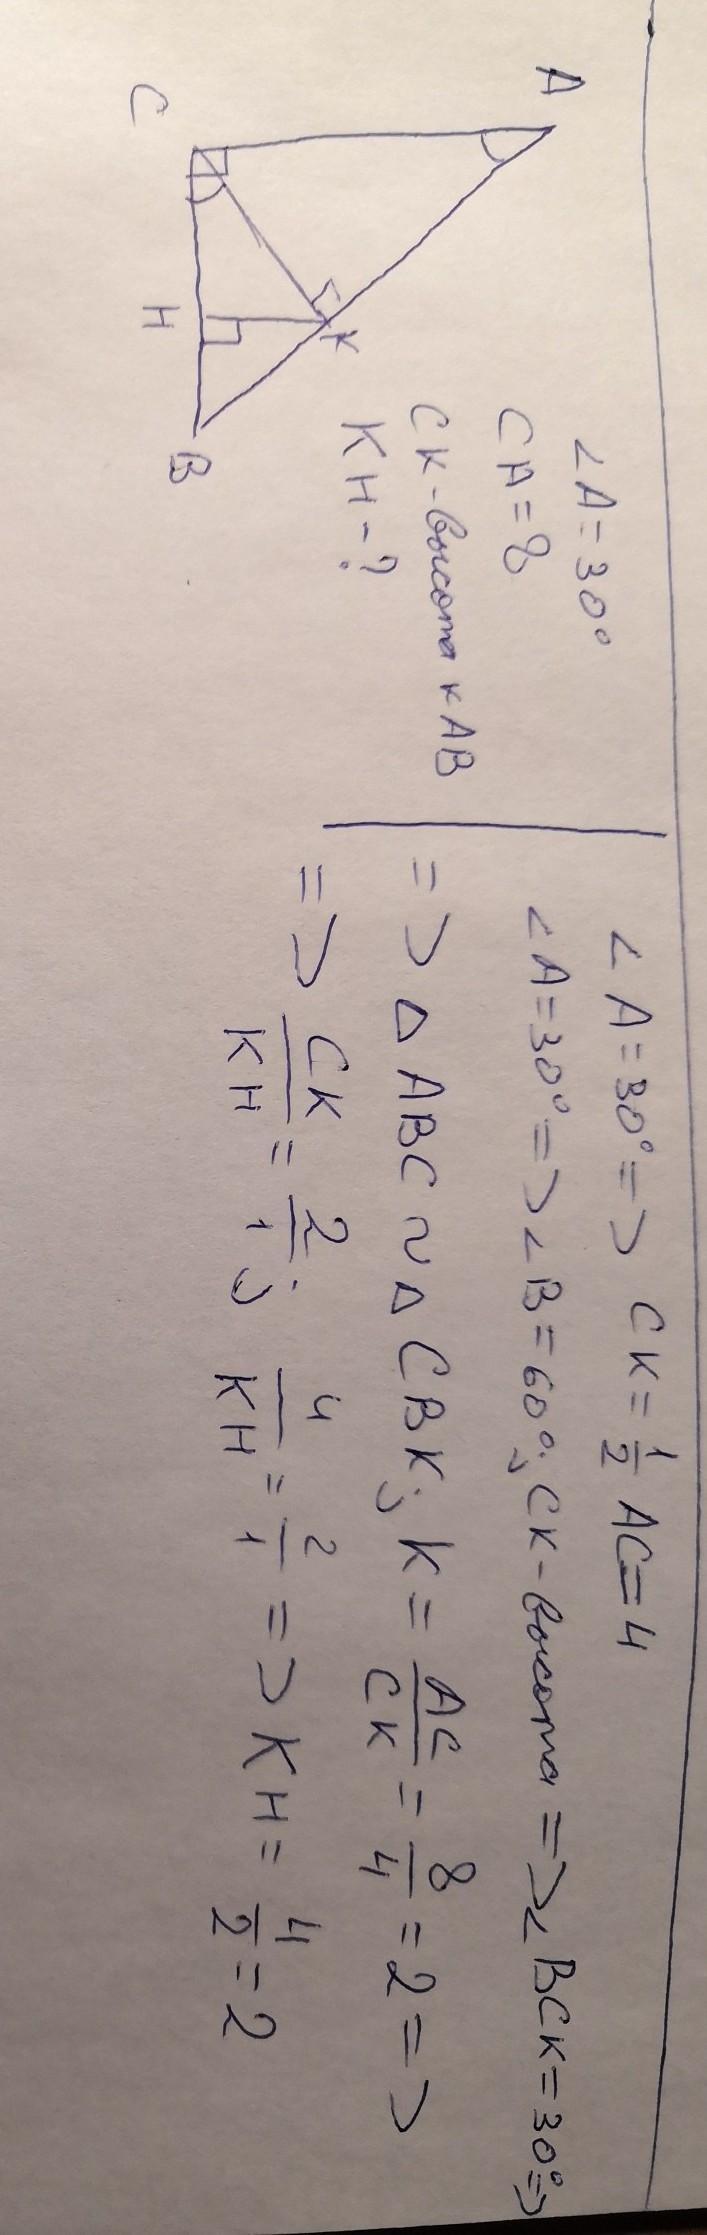 A
C
H
K
B
∠A=30°
CA=8
CK-высота к AB
KH-?
∠A=30°=> CK=1/2 AC=4
∠A=30°=>∠B=60°; CK-высота=>∠BCK=30°=>
=> △ABC~△CBK; k=AC/CK=8/4=2=>
=> CK/KH=2/1; 4/KH=2/1=>KH=4/2=2